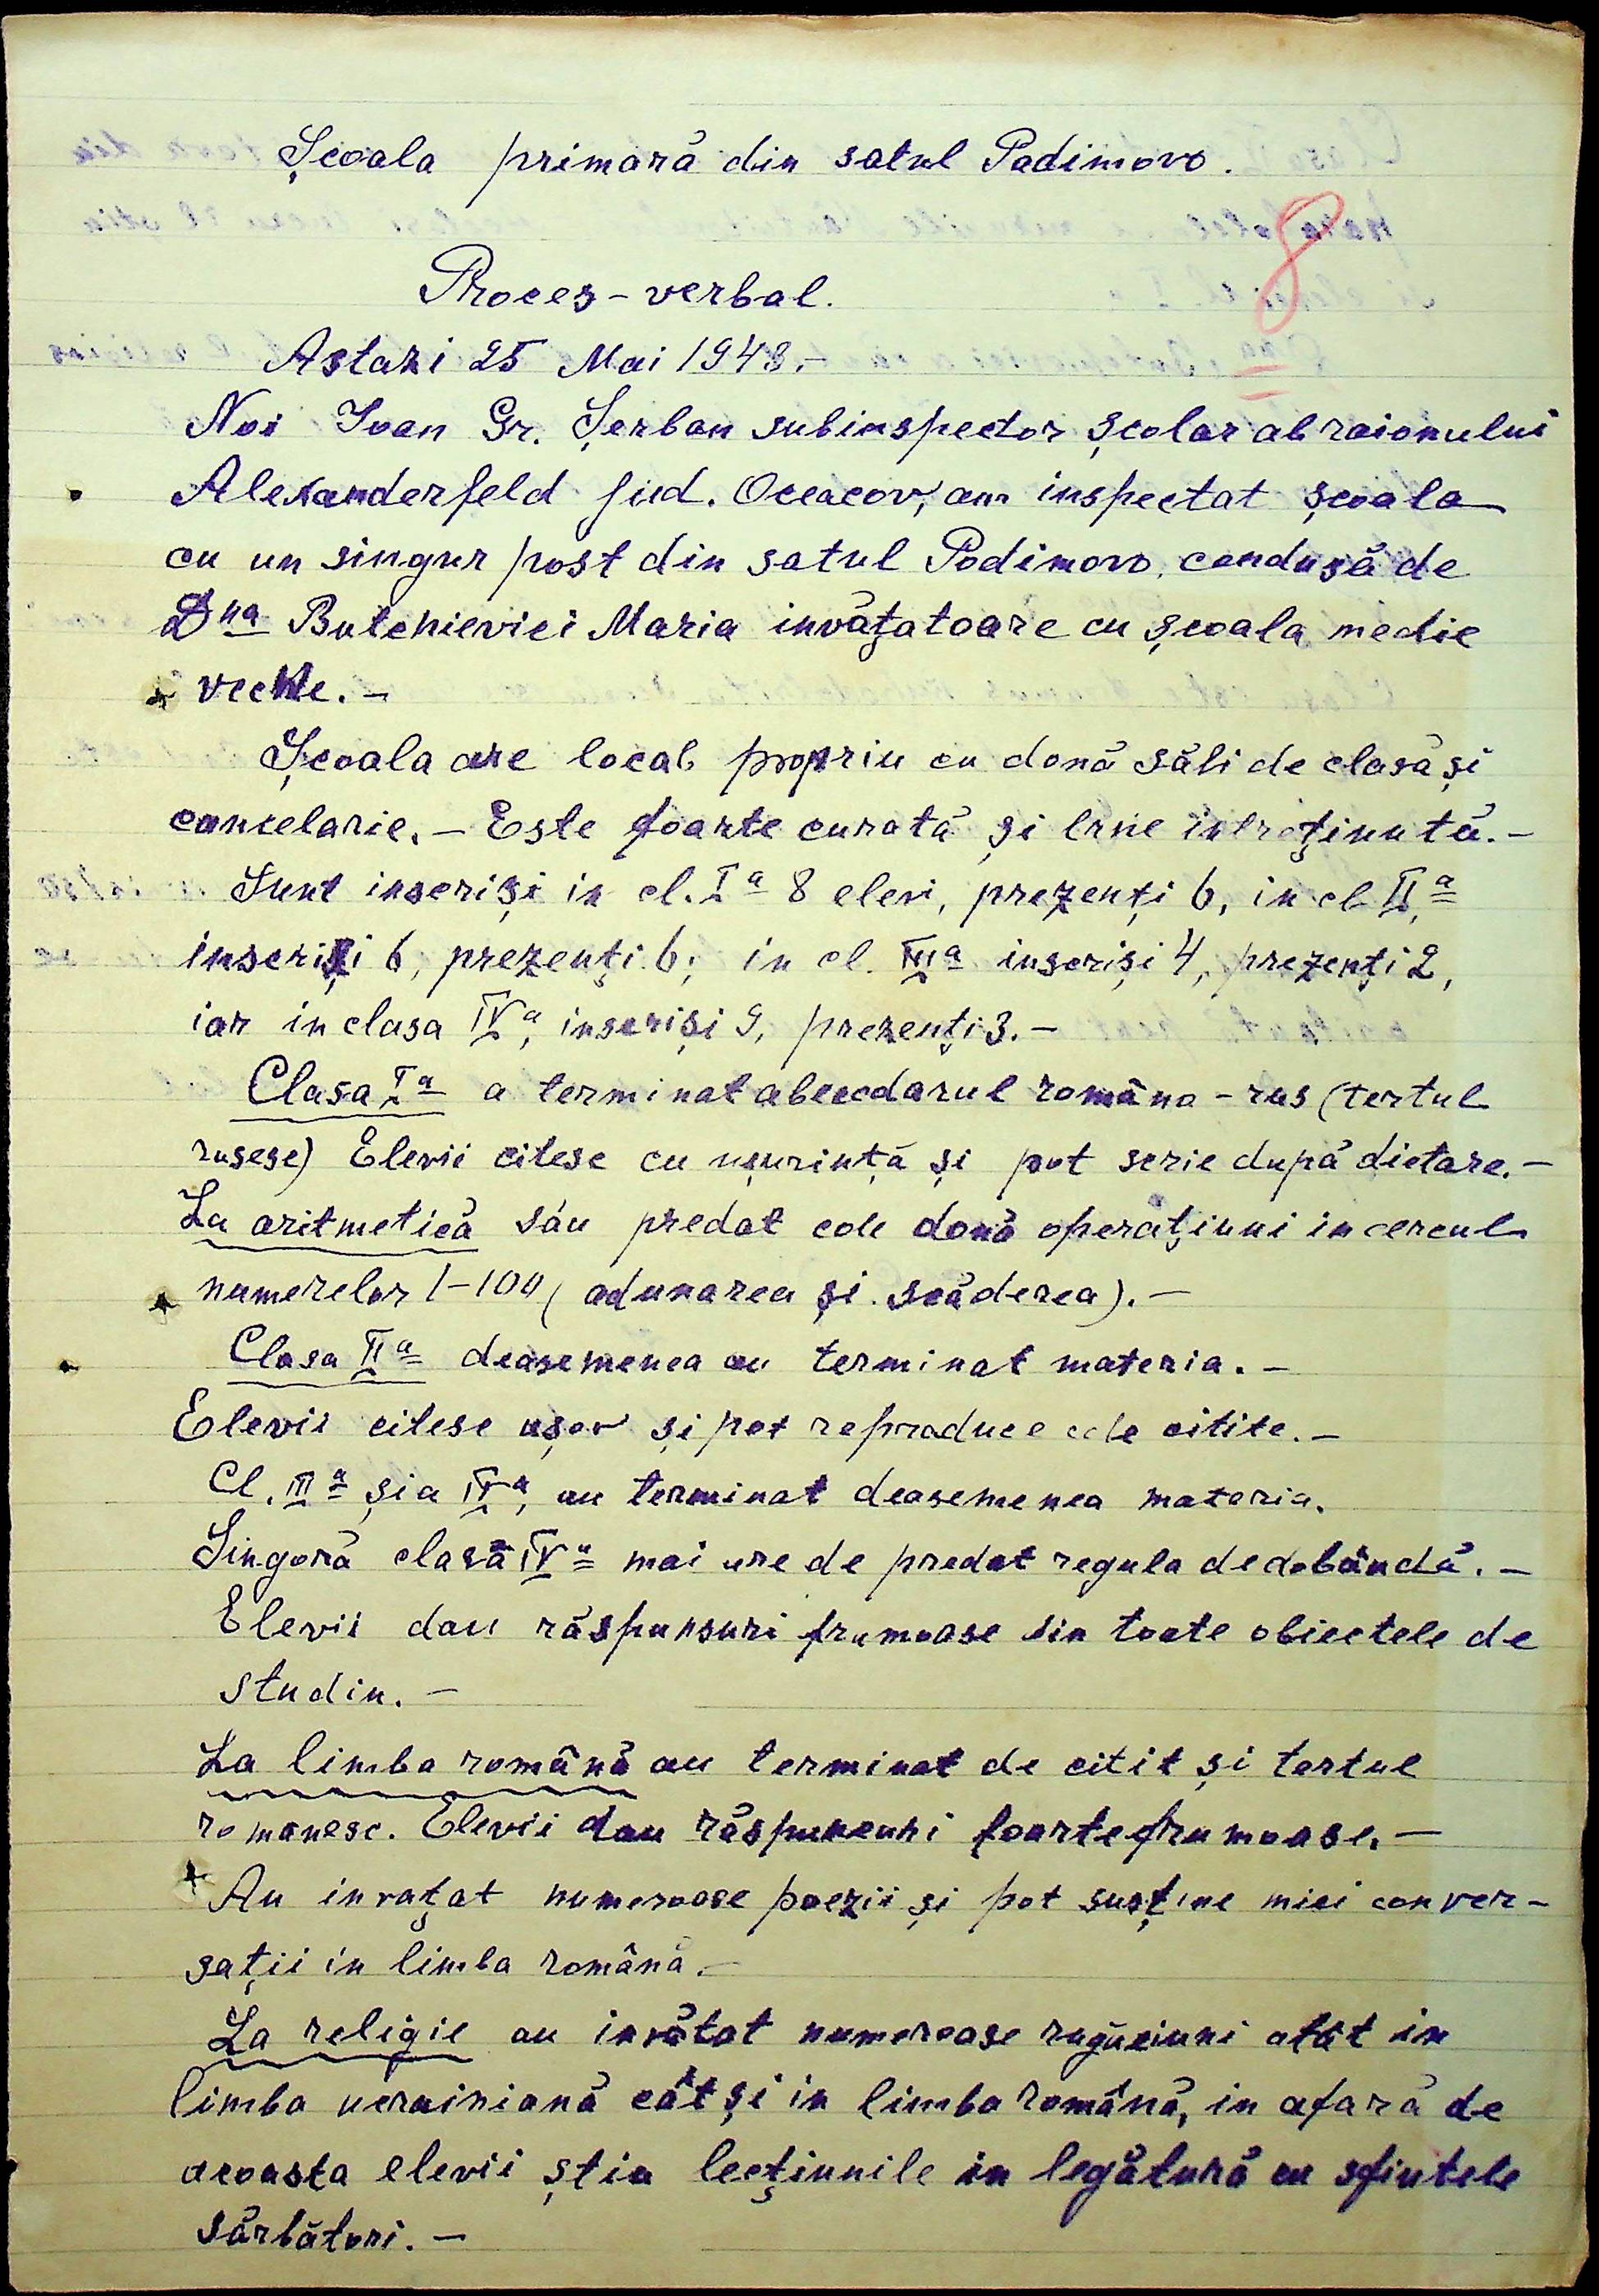 Școala primară din satul Padimovo.
8
Proces-verbal.
Astazi 25 Mai 1943.-
Noi Ioan Gr. Șerban subinspector școlar al raionului
Alexanderfeld jud. Oceacov, am inspectat școala
cu un singur post din satul Podimovo, condusă de
Dna Butchievici Maria invățatoare cu școala medie
veche.-
Școala are local propriu cu două săli de clasă și
cancelarie.- Este foarte curată și bine intreținută.-
Sunt inscriși in cl. Ia 8 elevi, prezenți 6, in cl. IIa
inscriși 6, prezenți 6; in cl. IIIa inscriși 4, prezenți 2,
iar in clasa IVa, inscriși 9, prezenți 3.-
Clasa Ia a terminat abecedarul româno-rus (textul
rusesc) Elevii citesc cu ușurință și pot scrie după dictare.-
La aritmetică său predat cele două operațiuni in cercul
numerelor 1-100 (adunarea și scăderea).-
Clasa IIa deasemenea au terminat materia.-
Elevii citesc ușor și pot reproduce cele citite.-
Cl. IIIa și a IVa, au terminat deasemenea materia.
Singură clasă IVa mai are de predat regula de dobândă.-
Elevii dau răspunsuri frumoase din toate obiectele de
studiu.-
La limba română au terminat de citit și textul
romanesc. Elevii dau răspunsuri foarte frumoase.-
Au invațat numeroase poezii și pot susține mici conver-
sații in limba română.-
La religie au invătat numeroase rugăciuni atât in
limba ucrainiană cât și in limba română, in afară de
aceasta elevii știu lecțiunile in legătură cu sfintele
sărbători.-